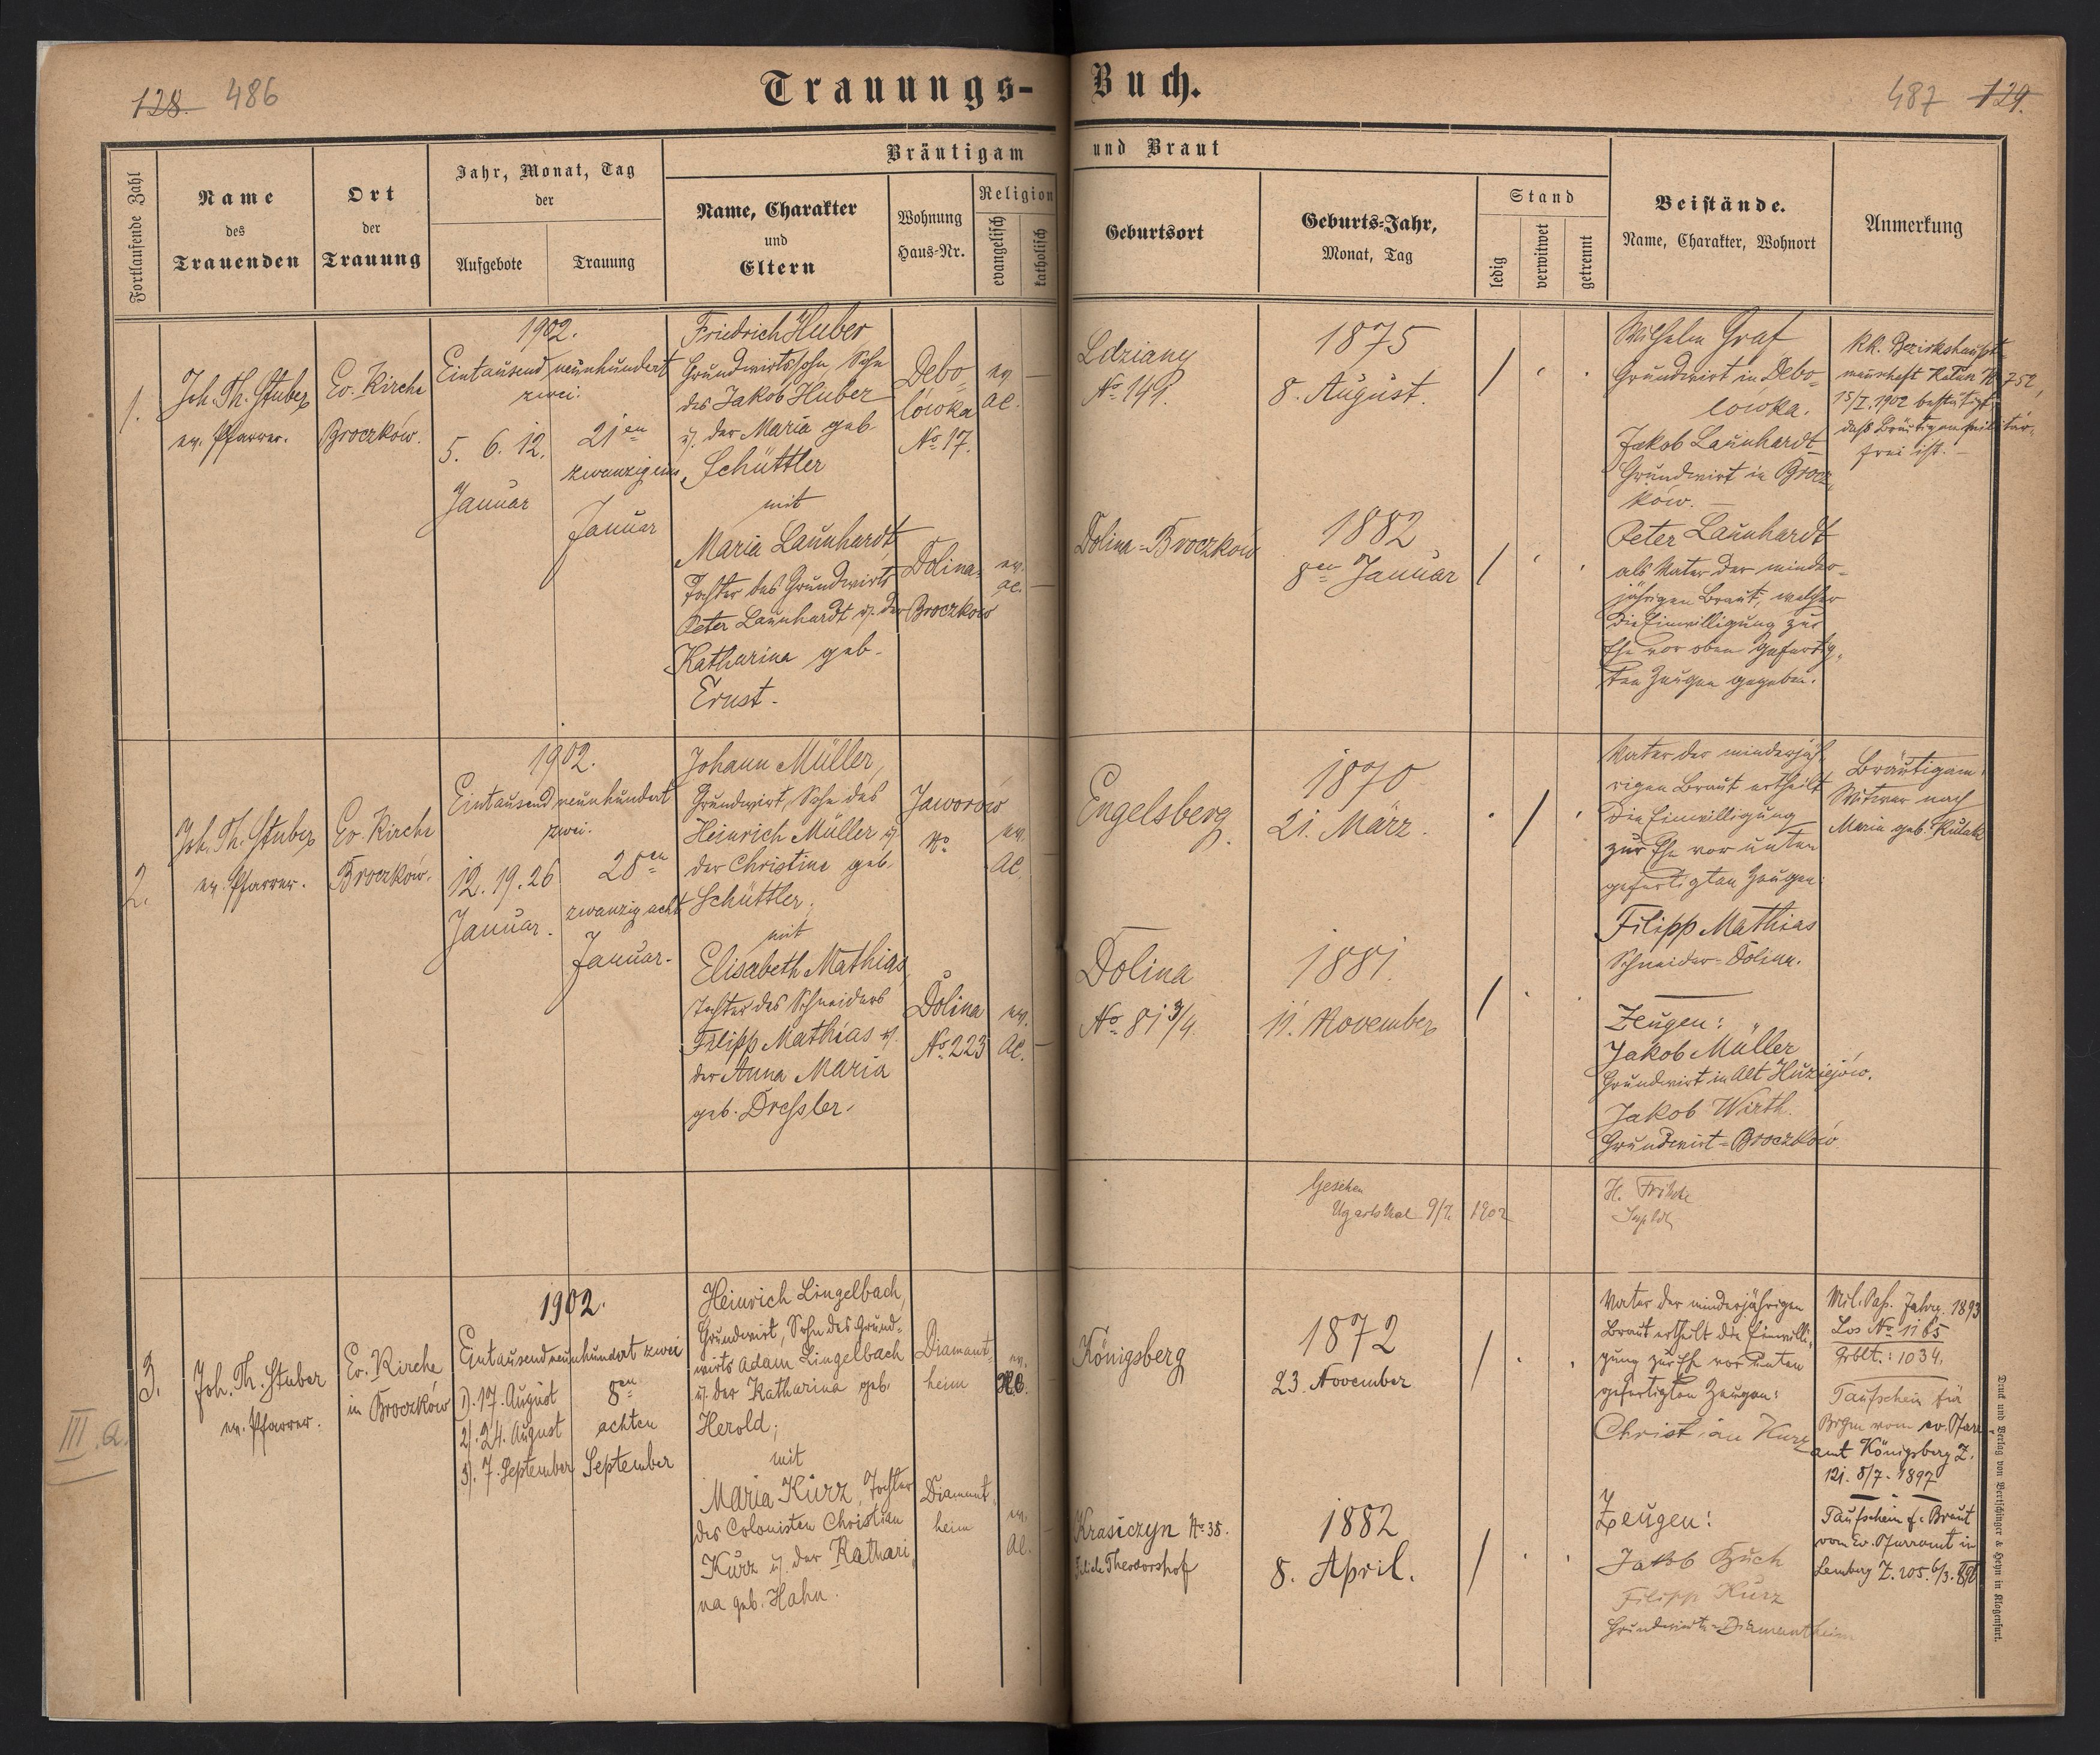 128. 486
Trauungs-Buch.
487 129.
Bräutigam und Braut
Fortlaufende Zahl
Name
des
Trauenden
Ort
der
Trauung
Jahr, Monat, Tag
der
Aufgebote
Trauung
Name, Charakter
und
Eltern
Wohnung
Haus-Nr.
Religion
evangelisch
katholisch
Geburtsort
Geburts-Jahr,
Monat, Tag
Stand
ledig
verwitwet
getrennt
Beistände.
Name, Charakter, Wohnort
Anmerkung
1.
Joh. Th. Stuber
ev. Pfarrer.
Ev. Kirche
Broczków.
1902.
Eintausend neunhundert
zwei.
5. 6. 12.
Januar
21en
zwanzig eins
Januar
Friedrich Huber
Grundwirtssohn, Sohn
des Jakob Huber
u. der Maria geb.
Schüttler
mit
Maria Launhardt
Tochter des Grundwirts
Peter Launhardt u. der
Katharina geb.
Ernst.
Debo-
lówka
No 17.
ev.
AC.
Dolina-
Broczków
ev.
AC.
Ldziany
No 149.
1875
8. August.
Dolina-Broczków
1882
8en Januar
Wilhelm Graf
Grundwirt in Debo-
lówka.
Jakob Launhardt
Grundwirt in Brocz-
ków.
Peter Launhardt
als Vater der minder-
jährigen Braut, welcher
die Einwilligung zur
Ehe vor oben gefertig-
ten Zeugen gegeben.
kk. Bezirkshaupt-
mannschaft 752
15/I. 1902 bestätigt,
daß Bräutigam militär-
frei ist.
2.
Joh. Th. Stuber
ev. Pfarrer.
Ev. Kirche
Broczków.
1902.
Eintausend neunhundert
zwei.
12. 19. 26
Januar.
28en
zwanzig acht
Januar.
Johann Müller,
Grundwirt, Sohn des
Heinrich Müller u.
der Christine geb.
Schüttler.
mit
Elisabeth Mathias,
Tochter des Schneiders
Filipp Mathias u.
der Anna Maria
geb. Dressler.
Jaworów
No
ev.
AC.
Dolina
No 223
ev.
AC.
Engelsberg.
1870
21. März.
Dolina
No 81 3/4
1881.
11. November
Vater der minderjäh-
rigen Braut ertheilt
die Einwilligung
zur Ehe vor unten
gefertigten Zeugen:
Filipp Mathias
Schneider-Dolina.
Zeugen:
Jakob Müller
Grundwirt in Alt Huziejów.
Jakob Wirth.
Grundwirt-Broczków
Bräutigam
Witwer nach
Maria geb. Kulak
Gesehen
Ugartsthal 1902
H.
3.
Joh. Th. Stuber
ev. Pfarrer.
Ev. Kirche
in Broczków
1902.
Eintausend neunhundert zwei
1). 17. August
2). 24. August
3). 7. September
8en
achten
September
Heinrich Lingelbach,
Grundwirt, Sohn des Grund-
wirts Adam Lingelbach
u. der Katharina geb.
Herold;
mit
Maria Kurz, Tochter
des Colonisten Christian
Kurz u. der Kathari-
na geb. Hahn.
Diamant-
heim
ev.
HC.
Diamant-
heim
ev.
AC.
Königsberg
1872
23. November
Krasiczyn No 38.
Filiale Theodorshof
1882
8. April.
Vater der minderjährigen
Braut ertheilt die Einwilli-
gung zur Ehe vor unten
gefertigten Zeugen:
Christian Kurz
Zeugen:
Jakob Buch
Filipp Kurz
Grundwirte-Diamantheim
Mil. Paß. Jahrg. 1893
Los No 1165
Grblt.: 1034.
Taufschein für
Brtgm vom ev. Pfarr-
amt Königsberg Z.
121. 8/7. 1897
Taufschein f. Braut
vom Ev. Pfarramt in
Lemberg Z. 205. 6/3.
III. a.
Druck und Verlag von Bertschinger & Heyn in Klagenfurt.